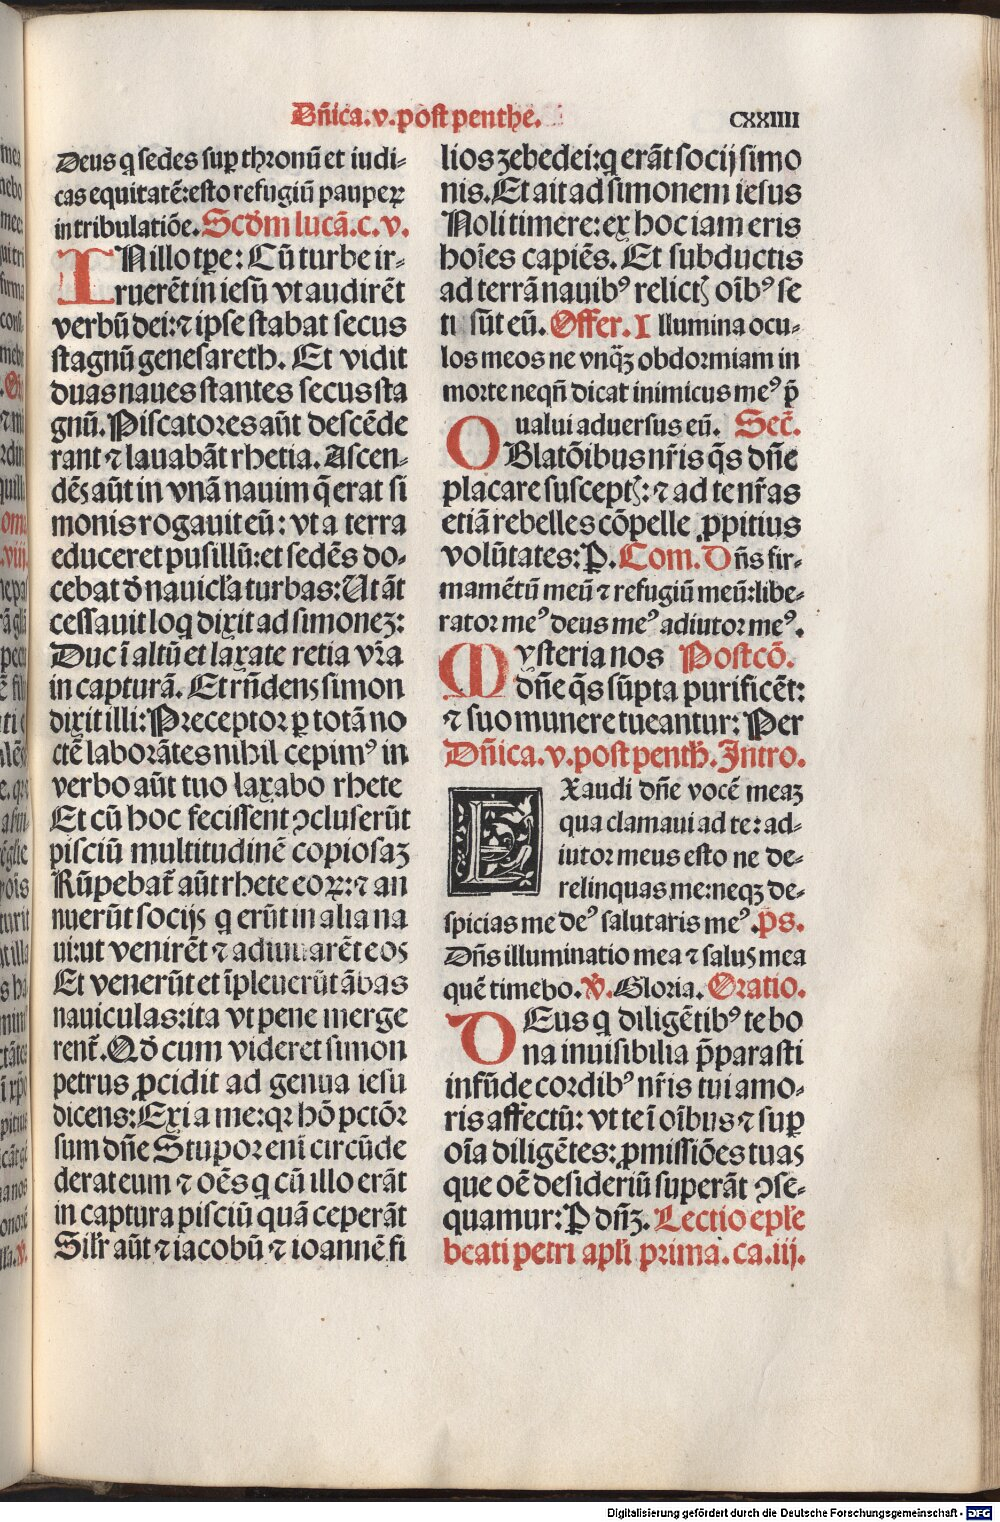 Dn̄ica.v.post penthe.
CXXIIII
Deus q̄ sedes sup̱ thronū et iudi-
cas equitatē:esto refugiū pauperꝝ
in tribulatiōe. Scd̓m lucā.c.v.
IN illo tp̱e: Cū turbe ir-
ruerēt in iesū vt audirēt
verbū dei:⁊ ipse stabat secus
stagnū genesareth. Et vidit
duas naues stantes secus sta
gnū. Piscatores aūt descēde
rant ⁊ lauabāt rhetia. Ascen-
dēs aūt in vnā nauim q̄ erat si
monis rogauit eū: vt a terra
educeret pusillū:et sedēs do-
cebat d̓ nauicl̓a turbas:Ut āt
cessauit loq̄ dixit ad simoneꝫ:
Duc ī altū et laxate retia vr̄a
in capturā. Et rn̄dens simon
dixit illi:Preceptor ꝑ totā no
ctē laborātes nihil cepimꝰ in
verbo aūt tuo laxabo rhete
Et cū hoc fecissent ꝯcluserūt
pisciū multitudinē copiosaꝫ
Rūpebat̄ aūt rhete eoꝝ:⁊ an
nuerūt socijs q̄ erūt in alia na
ui:ut venirēt ⁊ adiuuarēt eos
Et venerūt et īpleuerūt ābas
nauiculas:ita vt pene merge
rent̄. Qd̓ cum videret simon
petrus ꝓcidit ad genua iesu
dicens:Exi a me:qr hō pctōr
sum dn̄e Stupor enī circūde
derat eum ⁊ oēs q̄ cū illo erāt
in captura pisciū quā ceperāt
Silr̄ aūt ⁊ iacobū ⁊ ioannē fi
lios zebedei:q̄ erāt socij simo
nis. Et ait ad simonem iesus
Noli timere: ex hoc iam eris
hoīes capiēs. Et subductis
ad terrā nauibꝰ relictꝭ oībꝰ se
ti sūt eū. Offer. Illumina ocu-
los meos ne vnq̄ꝫ obdormiam in
morte neqn̄ dicat inimicus meꝰ p̄
ualui aduersus eū. Sec̄.
OBlatōibus nr̄is q̄s dn̄e
placare susceptꝭ: ⁊ ad te nr̄as
etiā rebelles cōpelle ꝓpitius
volūtates: ꝑ. Com. Dn̄s fir-
mamētū meū ⁊ refugiū meū:libe-
rator meꝰ deus meꝰ adiutor meꝰ.
Mysteria nos Postcō.
dn̄e q̄s sūpta purificēt:
⁊ suo munere tueantur: Per
Dn̄ica.v.post penth̄. Intro.
EXaudi dn̄e vocē meaꝫ
qua clamaui ad te: ad-
iutor meus esto ne de-
relinquas me:neqꝫ de-
spicias me deꝰ salutaris meꝰ. ps.
Dn̄s illuminatio mea ⁊ salus mea
quē timebo. ℣. Gloria. Oratio.
DEus q̄ diligētibꝰ te bo
na inuisibilia p̄parasti
infūde cordibꝰ nr̄is tui amo-
ris affectū: vt te ī oībus ⁊ sup̱
oīa diligētes: ꝓmissiōes tuas
que oē desideriū superāt ꝯse-
quamur: ꝑ dn̄ꝫ. Lectio epl̄e
beati petri apl̄i prima. ca.iij.
Digitalisierung gefördert durch die Deutsche Forschungsgemeinschaft - DFG